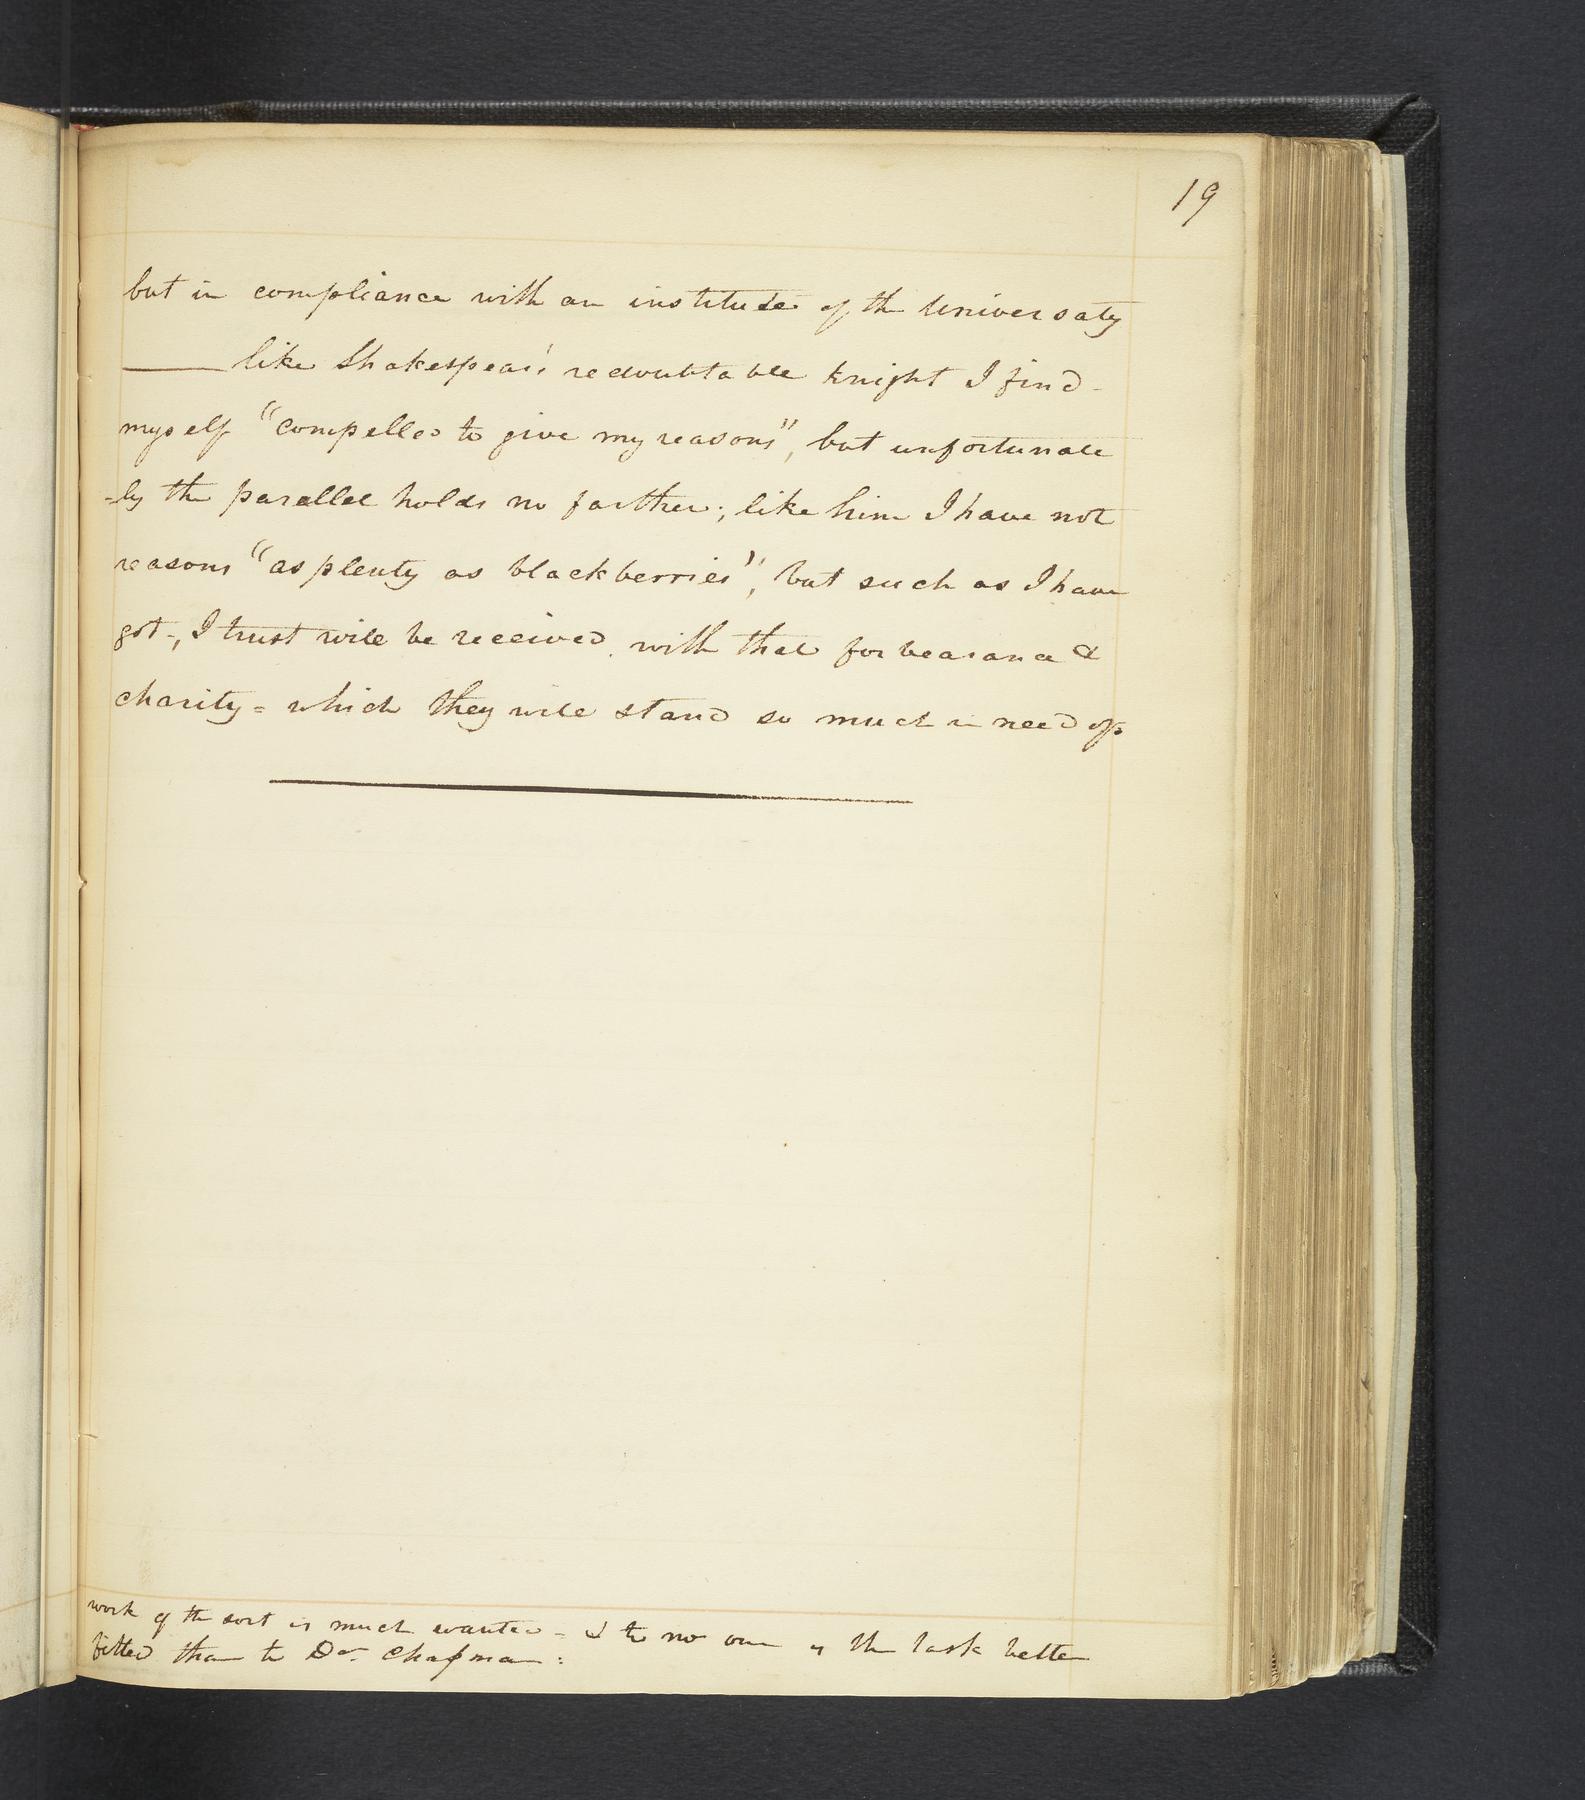 19
but in compliance with an institute of the Universaty
—— like Shakespear's redoubtable knight I find
myself "compelled to give my reasons", but unfortunate
-ly the parallel holds no farther; like him I have not
reasons "as plenty as blackberries", but such as I have
got-, I trust will be received with that forbearance &
charity = which they will stand so much in need of
work of the sort is much wanted - & to no one is the task better
fitted than to Dr. Chapman :